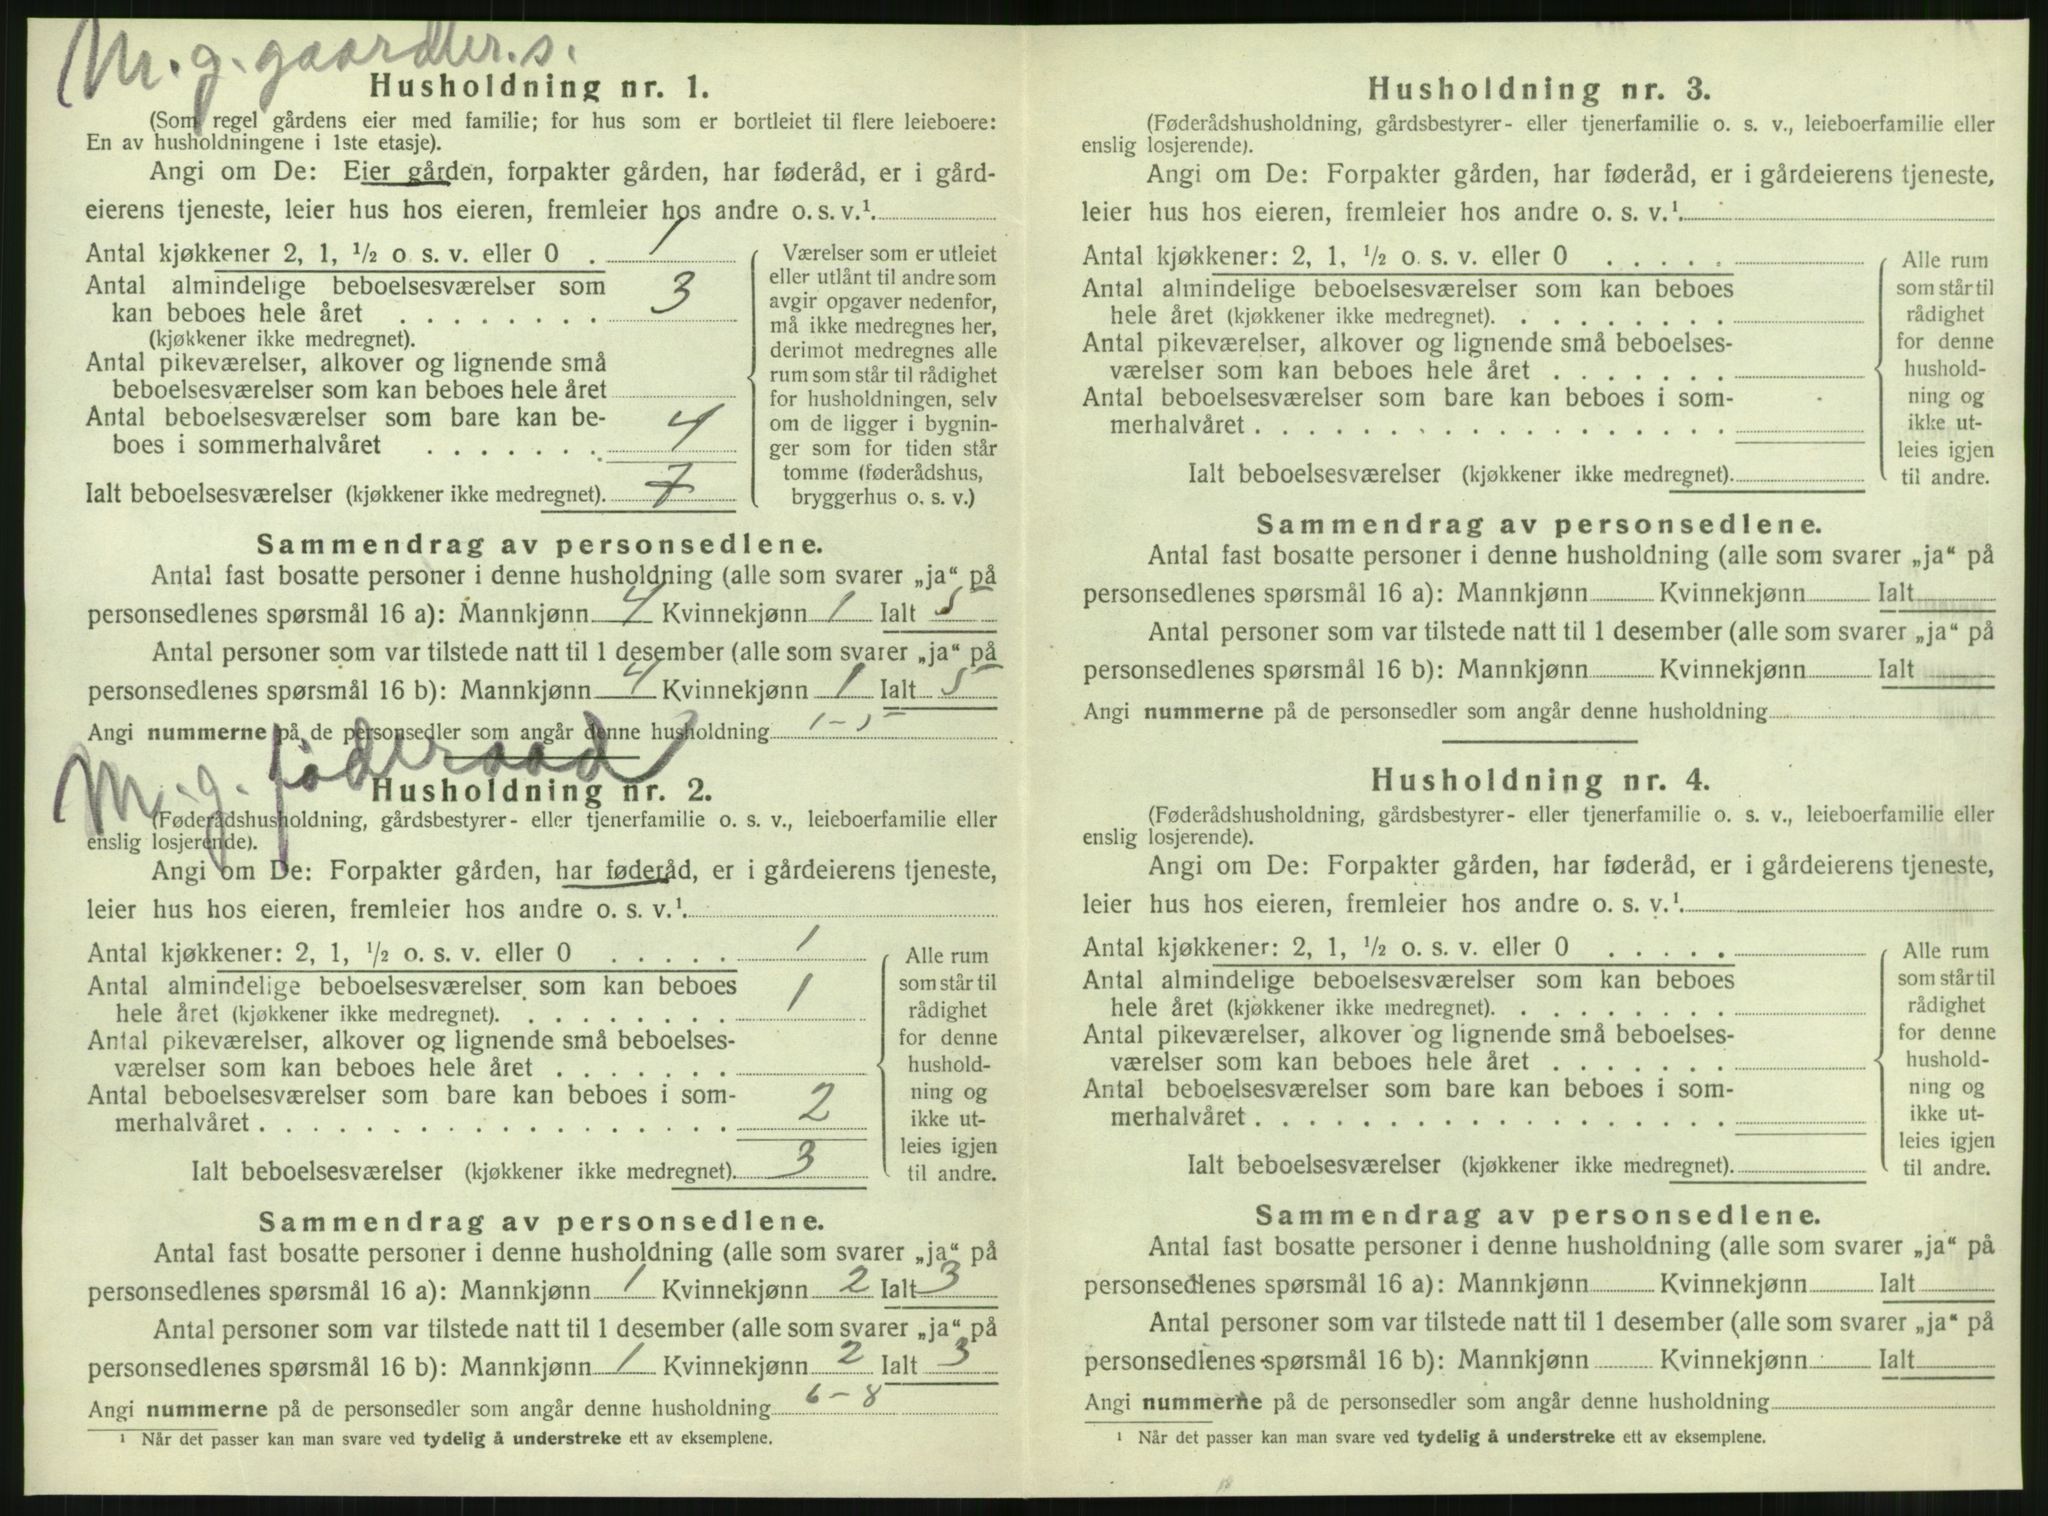 M. g. gaardbr. s.
Husholdning nr. 1.
(Som regel gårdens eier med familie; for hus som er bortleiet til flere leieboere:
En av husholdningene i 1ste etasje).
Angi om De: Eier gården, forpakter gården, har føderåd, er i gård-
eierens tjeneste, leier hus hos eieren, fremleier hos andre o. s. v.¹.
Antal kjøkkener 2, 1, ½ o s. v. eller 0 . 1
Antal almindelige beboelsesværelser som
kan beboes hele året . . . . . . . . 3
(kjøkkener ikke medregnet).
Antal pikeværelser, alkover og lignende små
beboelsesværelser som kan beboes hele året
Antal beboelsesværelser som bare kan be-
boes i sommerhalvåret . . . . . . . 4
Ialt beboelsesværelser (kjøkkener ikke medregnet). 7
Værelser som er utleiet
eller utlånt til andre som
avgir opgaver nedenfor,
må ikke medregnes her,
derimot medregnes alle
rum som står til rådighet
for husholdningen, selv
om de ligger i bygnin-
ger som for tiden står
tomme (føderådshus,
bryggerhus o. s. v.)
Sammendrag av personsedlene.
Antal fast bosatte personer i denne husholdning (alle som svarer „ja“ på
personsedlenes spørsmål 16 a): Mannkjønn 4 Kvinnekjønn 1 Ialt 5
Antal personer som var tilstede natt til 1 desember (alle som svarer „ja“ på
personsedlenes spørsmål 16 b): Mannkjønn 4 Kvinnekjønn 1 Ialt 5
Angi nummerne på de personsedler som angår denne husholdning 1-5
M. g. føderaad
Husholdning nr. 2.
(Føderådshusholdning, gårdsbestyrer- eller tjenerfamilie o. s. v., leieboerfamilie eller
enslig losjerende).
Angi om De: Forpakter gården, har føderåd, er i gårdeierens tjeneste,
leier hus hos eieren, fremleier hos andre o. s. v.¹.
Antal kjøkkener: 2, 1, ½ o. s. v. eller 0 . . . . . 1
Antal almindelige beboelsesværelser som kan beboes
hele året (kjøkkener ikke medregnet). . . . . . . . . 1
Antal pikeværelser, alkover og lignende små beboelses-
værelser som kan beboes hele året . . . . . . .
Antal beboelsesværelser som bare kan beboes i som-
merhalvåret . . . . . . . . . . . . . . . . . . 2
Ialt beboelsesværelser (kjøkkener ikke medregnet). 3
Alle rum
som står til
rådighet
for denne
hushold-
ning og
ikke ut-
leies igjen
til andre.
Sammendrag av personsedlene.
Antal fast bosatte personer i denne husholdning (alle som svarer „ja“ på
personsedlenes spørsmål 16 a): Mannkjønn 1 Kvinnekjønn 2 Ialt 3
Antal personer som var tilstede natt til 1 desember (alle som svarer „ja“ på
personsedlenes spørsmål 16 b): Mannkjønn 1 Kvinnekjønn 2 Ialt 3
Angi nummerne på de personsedler som angår denne husholdning 6-8
¹ Når det passer kan man svare ved tydelig å understreke ett av eksemplene.
Husholdning nr. 3.
(Føderådshusholdning, gårdsbestyrer- eller tjenerfamilie o. s. v., leieboerfamilie eller
enslig losjerende).
Angi om De: Forpakter gården, har føderåd, er i gårdeierens tjeneste,
leier hus hos eieren, fremleier hos andre o. s. v.¹.
Antal kjøkkener: 2, 1, ½ o. s. v. eller 0 . . . . .
Antal almindelige beboelsesværelser som kan beboes
hele året (kjøkkener ikke medregnet). . . . . . . . .
Antal pikeværelser, alkover og lignende små beboelses-
værelser som kan beboes hele året . . . . . . .
Antal beboelsesværelser som bare kan beboes i som-
merhalvåret . . . . . . . . . . . . . . . . . .
Ialt beboelsesværelser (kjøkkener ikke medregnet).
Alle rum
som står til
rådighet
for denne
hushold-
ning og
ikke ut-
leies igjen
til andre.
Sammendrag av personsedlene.
Antal fast bosatte personer i denne husholdning (alle som svarer „ja“ på
personsedlenes spørsmål 16 a): Mannkjønn Kvinnekjønn Ialt
Antal personer som var tilstede natt til 1 desember (alle som svarer „ja“ på
personsedlenes spørsmål 16 b): Mannkjønn Kvinnekjønn Ialt
Angi nummerne på de personsedler som angår denne husholdning
Husholdning nr. 4.
(Føderådshusholdning, gårdsbestyrer- eller tjenerfamilie o. s. v., leieboerfamilie eller
enslig losjerende).
Angi om De: Forpakter gården, har føderåd, er i gårdeierens tjeneste,
leier hus hos eieren, fremleier hos andre o. s. v.¹.
Antal kjøkkener: 2, 1, ½ o. s. v. eller 0 . . . . .
Antal almindelige beboelsesværelser som kan beboes
hele året (kjøkkener ikke medregnet). . . . . . . . .
Antal pikeværelser, alkover og lignende små beboelses-
værelser som kan beboes hele året . . . . . . .
Antal beboelsesværelser som bare kan beboes i som-
merhalvåret . . . . . . . . . . . . . . . . . .
Ialt beboelsesværelser (kjøkkener ikke medregnet).
Alle rum
som står til
rådighet
for denne
hushold-
ning og
ikke ut-
leies igjen
til andre.
Sammendrag av personsedlene.
Antal fast bosatte personer i denne husholdning (alle som svarer „ja“ på
personsedlenes spørsmål 16 a): Mannkjønn Kvinnekjønn Ialt
Antal personer som var tilstede natt til 1 desember (alle som svarer „ja“ på
personsedlenes spørsmål 16 b): Mannkjønn Kvinnekjønn Ialt
Angi nummerne på de personsedler som angår denne husholdning
¹ Når det passer kan man svare ved tydelig å understreke ett av eksemplene.